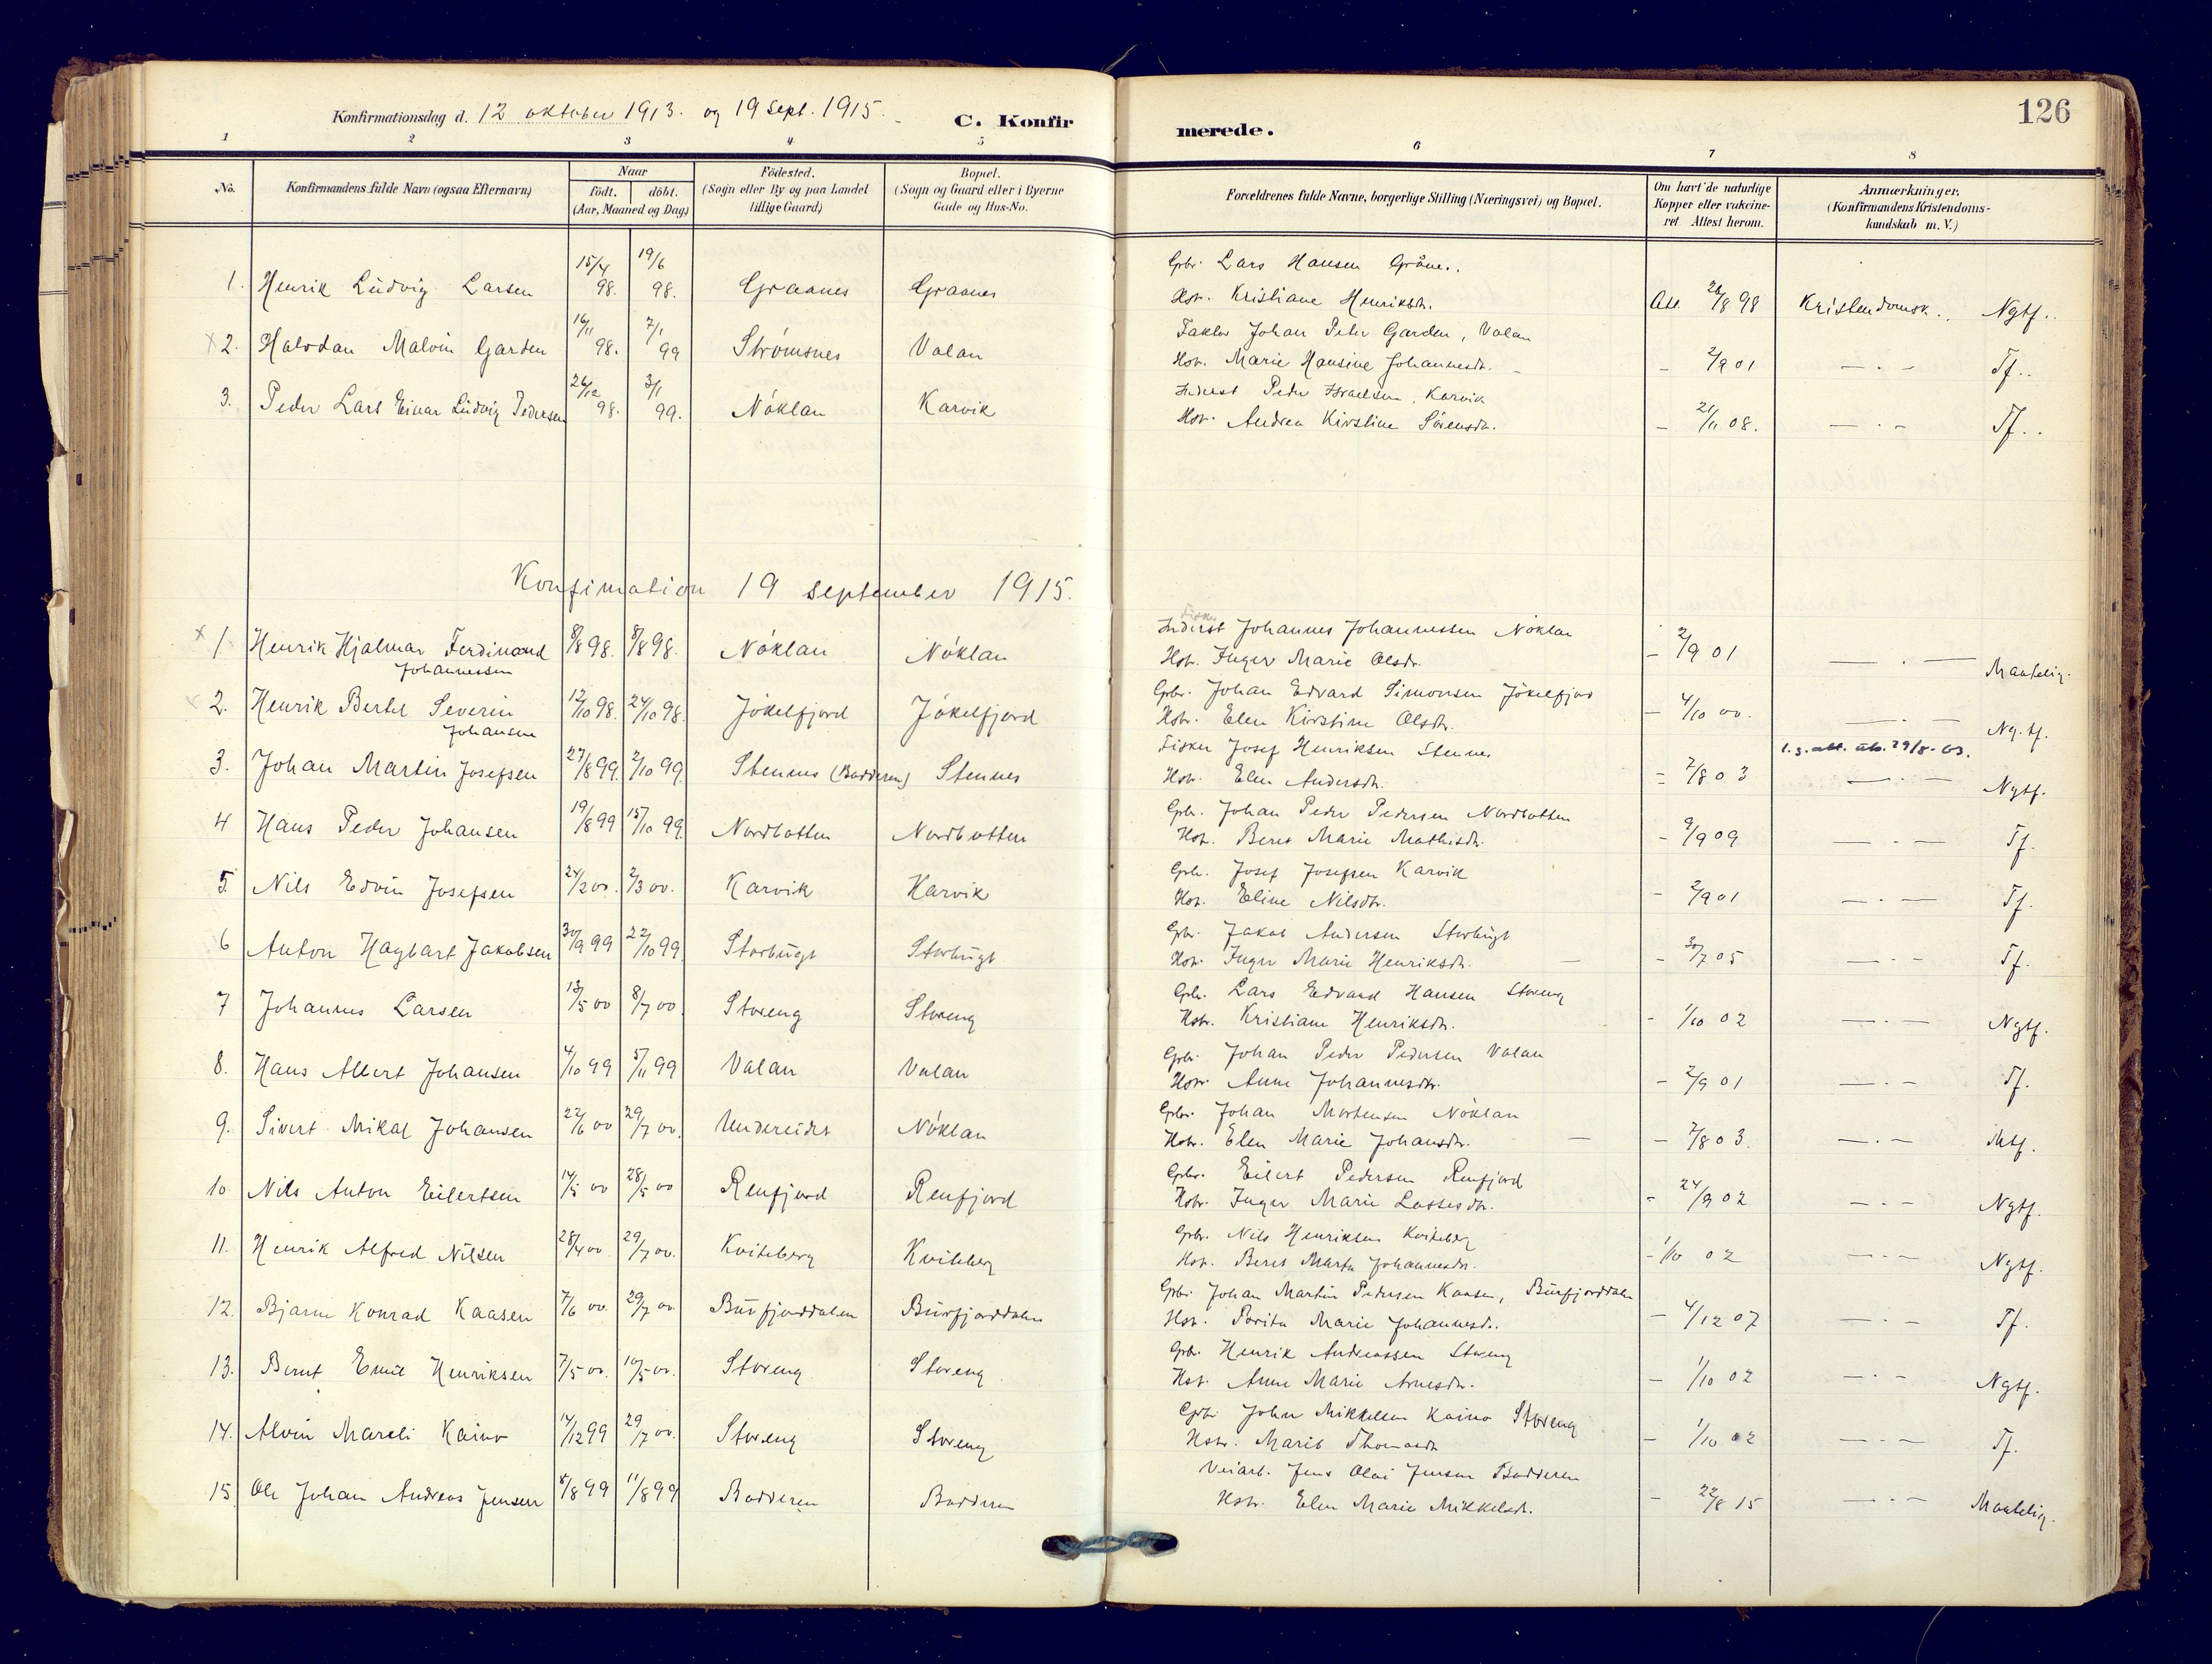 Konfirmationsdag d. 12 oktober 1913. og 19 Sept. 1915.
C. Konfirmerede.
126
1 2 3 4 5 6 7 8
No.
Konfirmandens fulde Navn (ogsaa Efternavn)
Naar
født. døbt.
(Aar, Maaned og Dag)
Fødested.
(Sogn eller By og paa Landet
tillige Gaard)
Bopæl.
(Sogn og Gaard eller i Byerne
Gade og Hus-No.
Forældrenes fulde Navne, borgerlige Stilling (Næringsvei) og Bopæl.
Om havt de naturlige
Kopper eller vakcine-
ret Attest herom.
Anmærkninger.
(Konfirmandens Kristendoms-
kundskab m. V.)
1. Henrik Ludvig Larsen 15/4 98. 19/6 98. Graanes Graanes Gbr. Lars Hansen Gråne..
Hst. Kristiane Henriksdtr. Att. 26/8 98 Kristendomsk.. Ngtf..
x 2. Halvdan Malvin Garden 16/11 98. 7/1 99 Strømsnes Valan Faktor Johan Peter Garden, Valan
Hst. Marie Hansine Johannesdtr. - - 2/9 01 — . — Tf..
3. Peder Lars Einar Ludvig Pedersen 26/12 98. 3/1 99. Nøklan Karvik Inderst Peder Israelsen, Karvik
Hst. Andrea Kirstine Sørensdtr. - 21/11 08. — . — Tf..
Konfirmation 19 september 1915.
x 1. Henrik Hjalmar Ferdinand 8/8 98. 8/8 98. Nøklan Nøklan Fisker Inderst Johannes Johannessen Nøklan
Johannessen Hst. Inger Marie Olsdr. - 2/9 01 — . — Maatelig.
x 2. Henrik Bertel Severin 12/10 98. 24/10 98. Jøkelfjord Jøkelfjord Gbr. Johan Edvard Simonsen Jøkelfjord
Johansen Hst. Elen Kirstine Olsdtr. - 4/10 00. — . — Ng.tf.
3. Johan Martin Josefsen 27/8 99. 2/10 99. Stennes (Badderen) Stennes Fisker Josef Henriksen Stennes
Hst. Elen Andersdtr. - 7/8 03 — . — Ngtf.
4 Hans Peder Johansen 19/8 99 15/10 99. Nordbotten Nordbotten Gbr. Johan Peder Pedersen Nordbotten
Hst. Beret Marie Mathisdtr. - 9/9 09 — . — Tf.
5. Nils Edvin Josefsen 24/2 00. 2/3 00. Karvik Karvik Gbr. Josef Josefsen Karvik
Hst. Eline Nilsdtr. - 2/9 01 — . — Tf.
6 Anton Hagbart Jakobsen 30/9 99 22/10 99. Storbugt Storbugt Gbr. Jakob Andersen Storbugt
Hst. Inger Marie Henriksdtr. — - 30/7 05 — . — Tf.
7 Johannes Larsen 13/5 00 8/7 00. Storeng Storeng Gbr. Lars Edvard Hansen Storeng
Hst. Kristiane Henriksdtr. - 1/10 02 — . — Ngtf.
8. Hans Albert Johansen 4/10 99 5/11 99 Valan Valan Gbr. Johan Peder Pedersen Valan
Hst. Anne Johannesdtr. - 2/9 01 — . — Tf.
9. Sivert Mikal Johansen 22/6 00 29/7 00. Undereidet Nøklan Gbr. Johan Mortensen Nøklan
Hst. Elen Marie Johansdtr. — - 7/8 03. — . — Mtf.
10 Nils Anton Eilertsen 14/5 00 28/5 00 Renfjord Renfjord Gbr. Eilert Pedersen Renfjord
Hst. Inger Marie Lassesdtr. - 24/9 02 — . — Ngtf.
11. Henrik Alfred Nilsen 28/4 00. 29/7 00. Kviteberg Kviteberg Gbr. Nils Henriksen Kviteberg
Hst. Beret Marta Johannesdtr. - 1/10 02 — . — Ngtf.
12. Bjarne Konrad Kaasen 7/6 00. 29/7 00 Burfjorddalen Burfjorddalen Gbr. Johan Martin Pedersen Kaasen, Burfjorddalen
Hst. Marie Johannesdtr. - 4/12 07 — . — Tf.
13. Bernt Emil Henriksen 7/5 00. 10/5 00. Storeng Storeng Gbr. Henrik Andreassen Storeng
Hst. Anne Marie Arnesdtr. - 1/10 02 — . — Ngtf.
14. Alvin Mareli Kaino 14/12 99 29/7 00. Storeng Storeng Gbr. John Mikkelsen Kaino Storeng
Hst. Marit Thomasdtr - 1/10 02 — . — Tf.
15. Ole Johan Andreas Jensen 8/8 99 11/8 99 Badderen Badderen Veiarb. Jens Olai Jensen Badderen
Hst. Elen Marie Mikkelsdtr. - 22/8 15 — . — Maatelig.